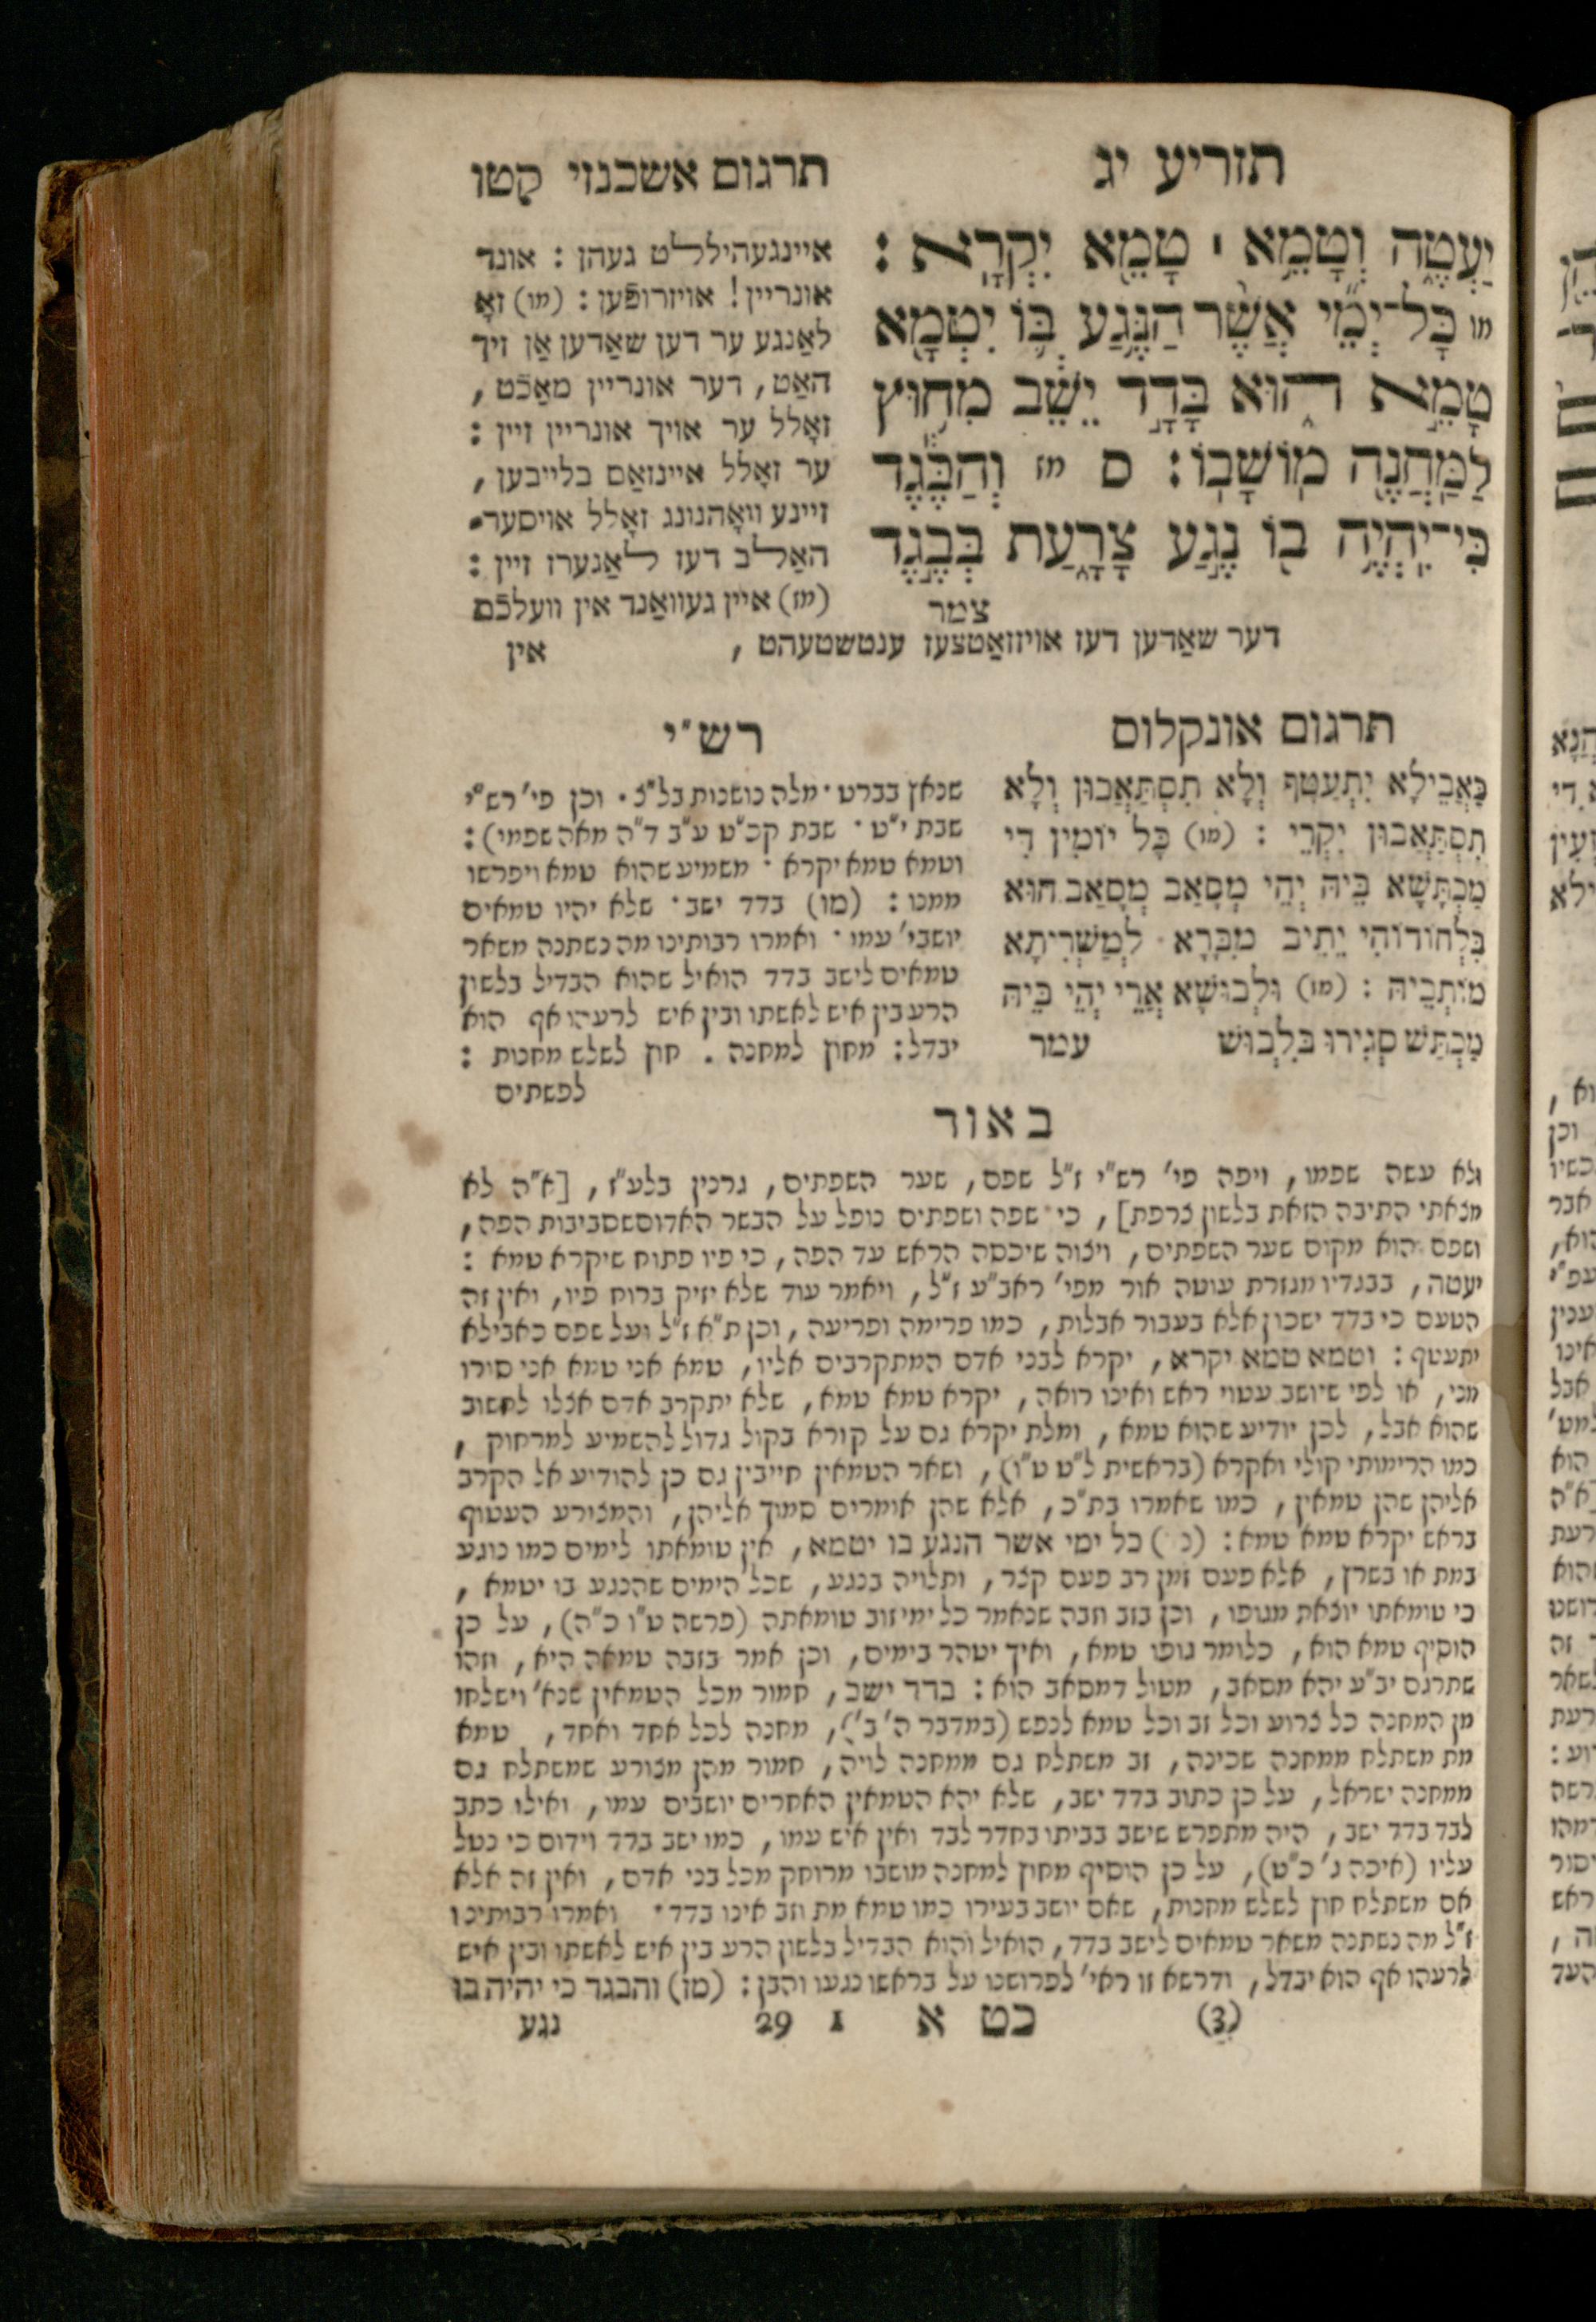 תזריע יג
יַעְטֶ֑ה וְטָמֵ֥א ׀ טָמֵ֖א יִקְרָֽא׃
מו כָּל־יְמֵ֞י אֲשֶׁ֨ר הַנֶּ֥גַע בּ֛וֹ יִטְמָ֖א
טָמֵ֣א ה֑וּא בָּדָ֣ד יֵשֵׁ֔ב מִח֥וּץ
לַֽמַּחֲנֶ֖ה מֽוֹשָׁבֽוֹ׃ ס מז וְהַבֶּ֕גֶד
כִּי־יִֽהְיֶ֥ה ב֖וֹ נֶ֣גַע צָרָ֑עַת בְּבֶ֣גֶד
צמר
תרגום אשכנזי קטו
איינגעהיללט געהן : אונד
אונריין! אויזרופֿען : (מו) זאָ
לאַנגע ער דען שאַדען אַן זיך
האַט, דער אונריין מאַכֿט,
זאָלל ער אויך אונריין זיין :
ער זאָלל איינזאַם בלייבען,
זיינע וואָהנונג זאָלל אויסער־
האַלב דעז לאַגערז זיין :
(מז) איין געוואַנד אין וועלכֿם
דער שאַדען דעז אויזזאַטצעז ענטשטעהט,
אין
תרגום אונקלוס
כַּאֲבֵילָא יִתְעַטַּף וְלָא תִסְתַּאֲבוּן וְלָא
תִסְתַּאֲבוּן יִקְרֵי : (מו) כָּל יוֹמִין דִּי
מַכְתָּשָׁא בֵּיהּ יְהֵי מְסָאַב מְסָאַב הוּא
בִּלְחוֹדוֹהִי יֵתִיב מִבָּרָא לְמַשְׁרִיתָא
מוֹתְבֵיהּ : (מז) וּלְבוּשָׁא אֲרֵי יְהֵי בֵּיהּ
מַכְתַּשׁ סְגִירוּ בִּלְבוּשׁ
עמר
רש"י
שנאן בברט · מלה נושנות בל"צ · וכן פי' רש"י
שבת י"ט · שבת קכ"ט ע"ב ד"ה מאה שפמי) :
וטמא טמא יקרא · משמיע שהוא טמא ויפרשו
ממנו : (מו) בדד ישב · שלא יהיו טמאים
יושבי' עמו · ואמרו רבותינו מה נשתנה משאר
טמאים לישב בדד הואיל שהוא הבדיל בלשון
הרע בין איש לאשתו ובין איש לרעהו אף הוא
יבדל : מחוץ למחנה . חוץ לשלש מחנות :
לפשתים
באור
ולא עשה שפמו, ויפה פי' רש"י ז"ל שפם, שער השפתים, גרנין בלע"ז, [א"ה לא
מצאתי התיבה הזאת בלשון צרפת], כי שפה ושפתים נופל על הבשר האדום שסביבות הפה,
ושפם הוא מקום שער השפתים, ויצוה שיכסה הראש עד הפה, כי פיו פתוח שיקרא טמא :
יעטה, בבגדיו מגזרת עוטה אור מפי' ראב"ע ז"ל, ויאמר עוד שלא יזיק ברוח פיו, ואין זה
הטעם כי בדד ישכון אלא בעבור אבלות, כמו פרימה ופריעה, וכן ת"א ז"ל ועל שפם כאבילא
יתעטף : וטמא טמא יקרא, יקרא לבני אדם המתקרבים אליו, טמא אני טמא אני סורו
מני, או לפי שיושב עטוי ראש ואינו רואה, יקרא טמא טמא, שלא יתקרב אדם אצלו לחשוב
שהוא אבל, לכן יודיע שהוא טמא, ומלת יקרא גם על קורא בקול גדול להשמיע למרחוק,
כמו הרימותי קולי ואקרא (בראשית ל"ט ט"ו), ושאר הטמאין חייבין גם כן להודיע אל הקרב
אליהן שהן טמאין, כמו שאמרו בת"כ, אלא שהן אומרים סמוך אליהן, והמצורע העטוף
בראש יקרא טמא טמא : כל ימי אשר הנגע בו יטמא, אין טומאתו לימים כמו נוגע
במת או בשרץ, אלא פעם זמן רב פעם קצר, ותלויה בנגע, שכל הימים שהנגע בו יטמא,
כי טומאתו יוצאת מגופו, וכן בזב וזבה שנאמר כל ימי זוב טומאתה (פרשה ט"ו כ"ה), על כן
הוסיף טמא הוא, כלומר גופו טמא, ואיך יטהר בימים, וכן אמר בזבה טמאה היא, וזהו
שתרגם יב"ע יהא מסאב, מטול דמסאב הוא : בדד ישב, חמור מכל הטמאין שנא' וישלחו
מן המחנה כל צרוע וכל זב וכל טמא לנפש (במדבר ה' ב'), מחנה לכל אחד ואחד, טמא
מת משתלח ממחנה שכינה, זב משתלח גם ממחנה לויה, חמור מהן מצורע שמשתלח גם
ממחנה ישראל, על כן כתוב בדד ישב, שלא יהא הטמאין האחרים יושבים עמו, ואילו כתב
לבד בדד ישב, היה מתפרש שישב בביתו בחדר לבד ואין איש עמו, כמו ישב בדד וידום כי נטל
עליו (איכה ג' כ"ט), על כן הוסיף מחוץ למחנה מושבו מרוחק מכל בני אדם, ואין זה אלא
אם משתלח חוץ לשלש מחנות, שאם יושב בעירו כמו טמא מת וזב אינו בדד · ואמרו רבותינו
ז"ל מה נשתנה משאר טמאים לישב בדד, הואיל והוא הבדיל בלשון הרע בין איש לאשתו ובין איש
לרעהו אף הוא יבדל, ודרשא זו ראי' לפרושנו על בראשו נגעו והבן : (מז) והבגד כי יהיה בו
(3) כט א 1 29 נגע